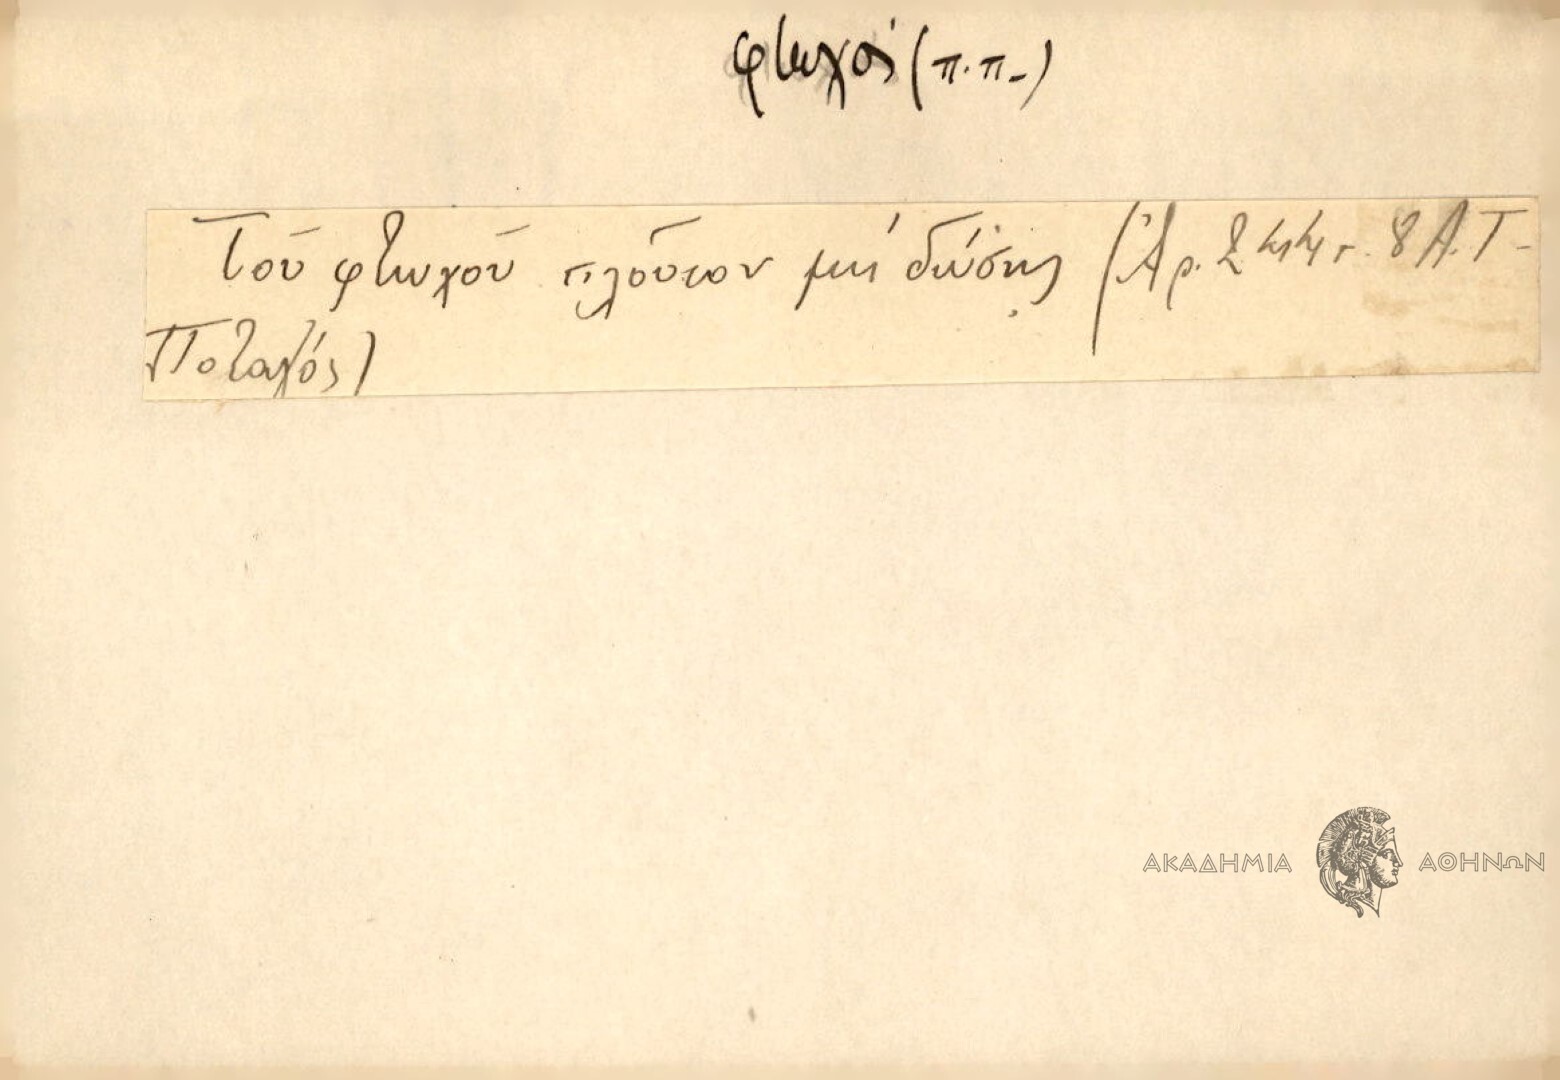 φτωχός (π.π.)
Τοῦ φτωχοῦ πλοῦτον μὴ δώσῃς (Ἀρ. 8 Α.Τ-
Ποταγός)
ΑΚΑΔΗΜΙΑ ΑΘΗΝΩΝ